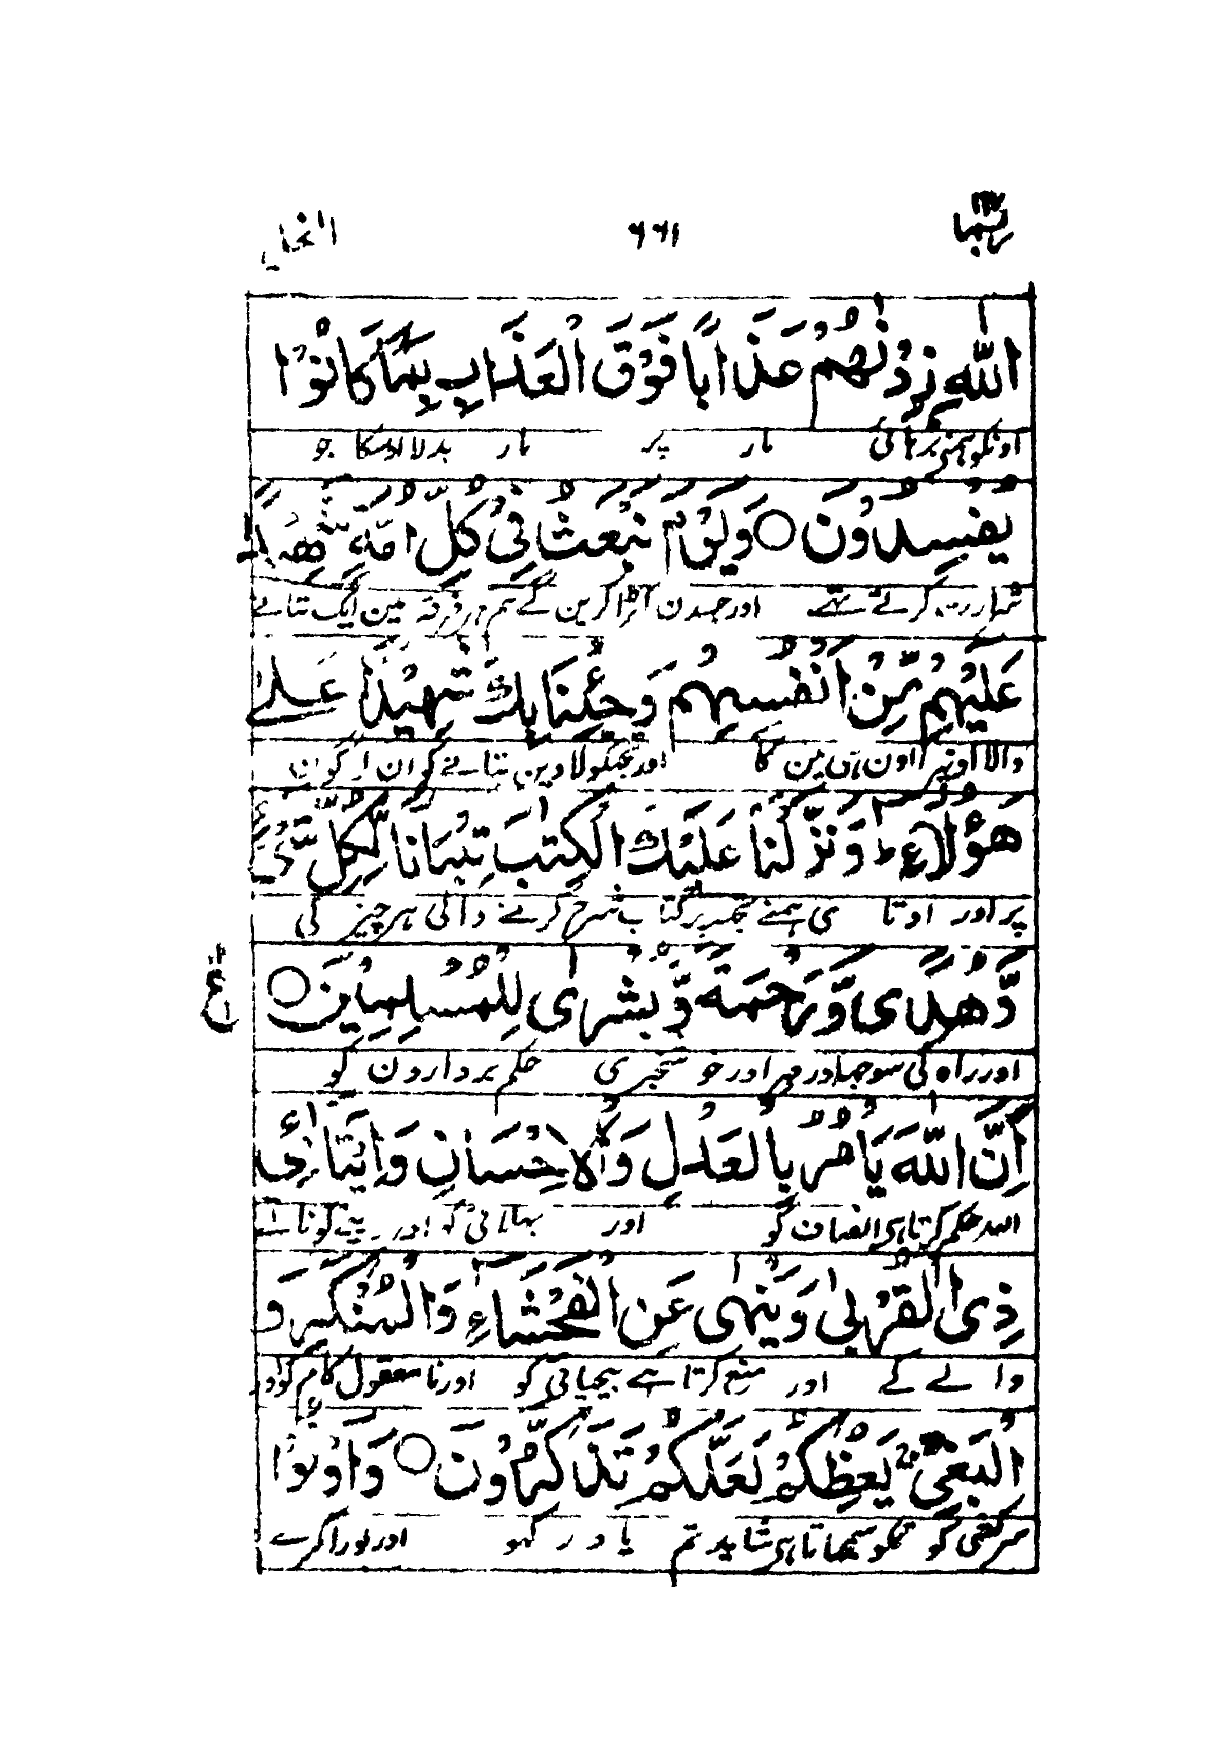 ربما ۶۶۱ النحل
اللّٰهِ زِدْنٰهُمْ عَذَابًا فَوْقَ الْعَذَابِ بِمَا كَانُوْا
اونکو ہمنے بڑہائی مار پر مار بدلا اوسکا جو
يُفْسِدُوْنَ ○ وَيَوْمَ نَبْعَثُ فِيْ كُلِّ اُمَّةٍ شَهِيْدًا
شرارت کرتے تہے اور جسدن کہڑا کرین گے ہم ہر فرقہ مین ایک بتانے
عَلَيْهِمْ مِّنْ اَنْفُسِهِمْ وَجِئْنَا بِكَ شَهِيْدًا عَلٰى
والا اونپر اون ہی مین کا اور تجکو لاوین بتانے کو ان لوگون
هٰٓؤُلَآءِ ؕ وَنَزَّلْنَا عَلَيْكَ الْكِتٰبَ تِبْيَانًا لِّكُلِّ شَيْءٍ
پر اور اوتاری ہمنے تجہہ پر کتاب شرح کرنے والی ہر چیز کی
وَّهُدًى وَّرَحْمَةً وَّبُشْرٰى لِلْمُسْلِمِيْنَ ○
اور راہ کی سوجہہ اور مہر اور خوشخبری حکم بردارون کو
اِنَّ اللّٰهَ يَاْمُرُ بِالْعَدْلِ وَالْاِحْسَانِ وَاِيْتَآئِ
اللہ حکم کرتا ہی انصاف کو اور بہلائی کو اور دینے کو ناتے
ذِى الْقُرْبٰى وَيَنْهٰى عَنِ الْفَحْشَآءِ وَالْمُنْكَرِ وَ
والے کے اور منع کرتا ہے بیحیائی کو اور نامعقول کام کو اور
الْبَغْيِ ۚ يَعِظُكُمْ لَعَلَّكُمْ تَذَكَّرُوْنَ ○ وَاَوْفُوْا
سرکشی کو تمکو سمجہاتا ہی شاید تم یاد رکہو اور پورا کرے